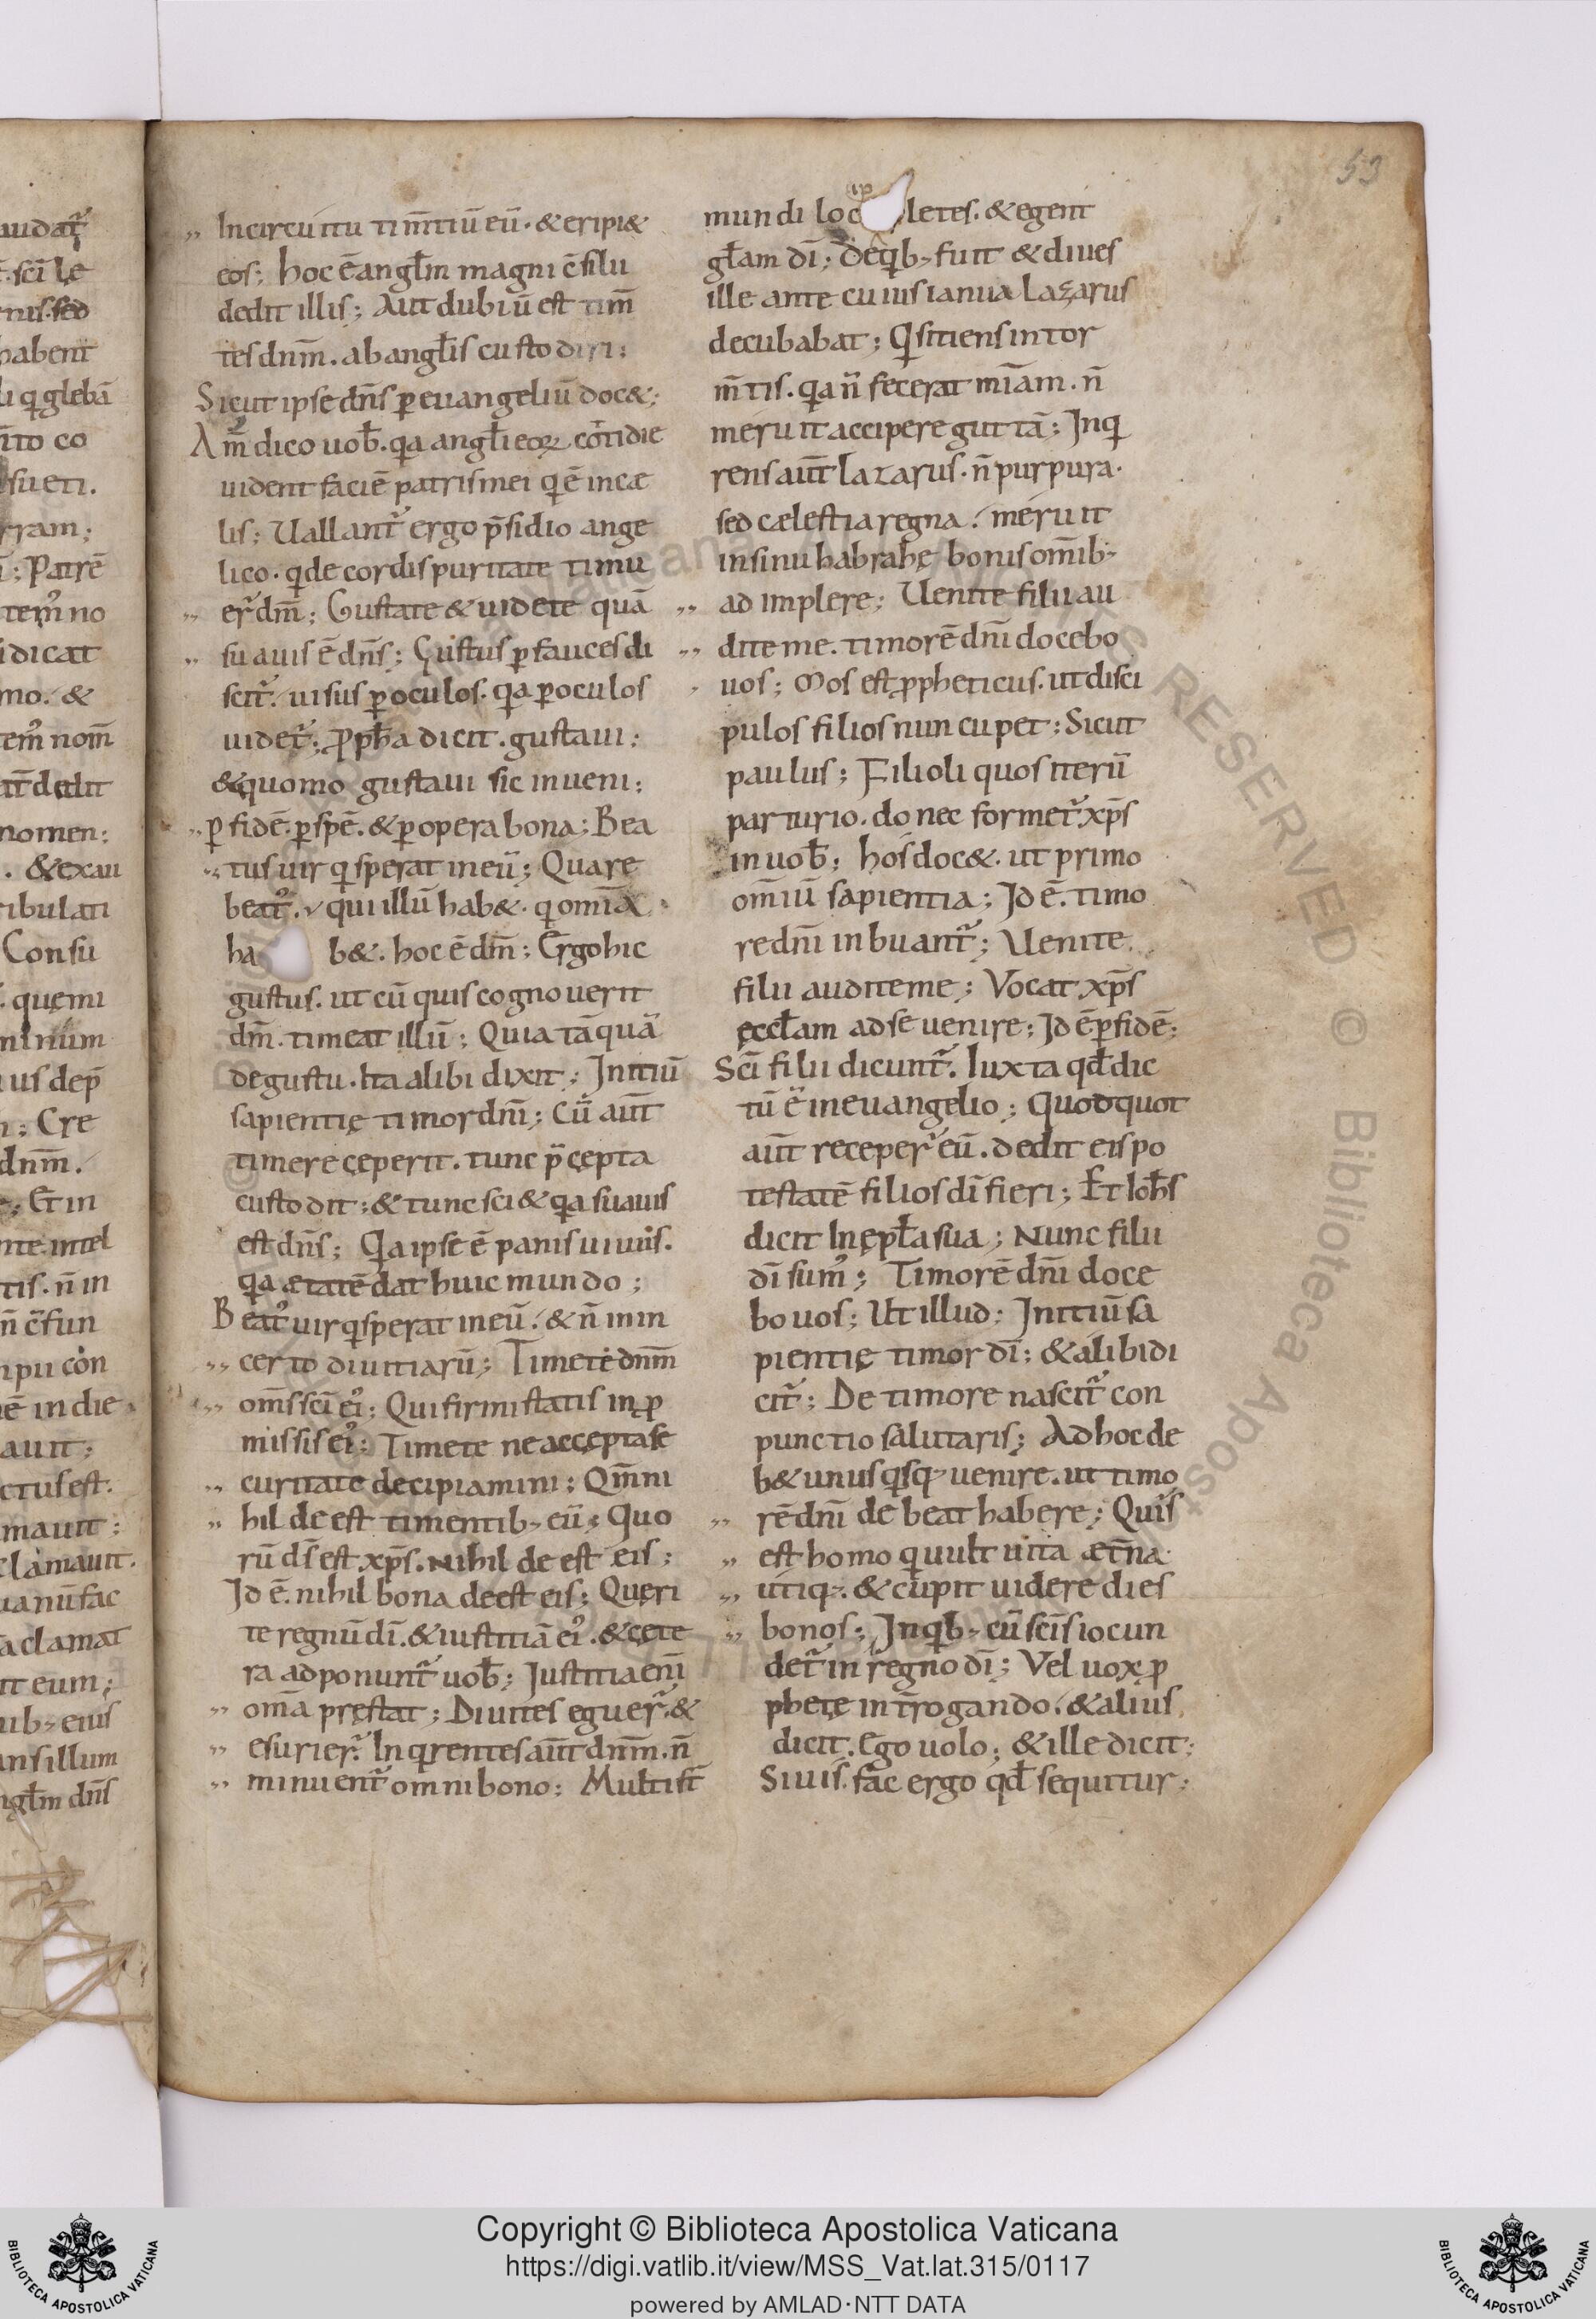 53
In circuitu tim̄tiū eū. & eripi&
eos; hoc ē angłm magni c̄silii
dedit illis; Aut dubiū est tim̄
tes dnm̄. ab angłis custodiri;
Sicut ipse dn̄s ꝑ euangeliū doc&;
Am̄ dico uob̄. qa angłi eoꝝ cotidie
uident faciē patris mei q ē in cæ
lis; Uallant̃ ergo p̄sidio ange
lico. q de cordis puritate timu
er̃ dm̄; Gustate & uidete quā
suauis ē dn̄s; Gustus ꝑ fauces di
scit̃. uisus ꝑ oculos. qa ꝑ oculos
uidet̃; ꝓpħa dicit. gustaui;
& quomo gustaui sic inueni;
ꝑ fidē. ꝑ spē. & ꝑ opera bona; Bea
tus uir q sperat in eū; Quare
beat᾽. qui illū hab&. q omīa
ha b&. hoc ē dm̄; Ergo hic
gustus. ut cū quis cognouerit
dm̄. timeat illū; Quia tāquā
de gustu. ita alibi dixit; Initiū
sapientię timor dn̄i; Cū aut̄
timere ceperit. tunc p̄cepta
custodit; & tunc sci& qa suauis
est dn̄s; Qa ipse ē panis uiuus.
qa ætatē dat huic mundo;
Beat᾽ uir q sperat in eū. & n̄ in in
certo diuitiarū; Timete dnm̄
om̄s sc̄i ei᾽; Qui firmi statis in ꝓ
missis ei᾽; Timete ne accepta se
curitate decipiamini; Qm̄ ni
hil deest timentib; eū; Quo
rū d̄s est xp̄s. nihil deest eis;
Id ē. nihil bona deest eis; Queri
te regnū dī. & iustitiā ei᾽. & cęte
ra adponunt̃ uob̄; Iustitia enī
oma pręstat; Diuites eguer̃. &
esurier̃. Inqrentes aut̄ dnm̄. n̄
minuent̃ omni bono; Multi st̄
mundi loc ip letes. & egent
głam dī; de qb; fuit & diues
ille ante cuius ianua lazarus
decubabat; Q sitiens in tor
m̄tis. qa n̄ fecerat mīam. n̄
meruit accipere guttā; Inq
rens aut̄ lazarus. n̄ purpura.
sed cælestia regna. meruit
in sinu habrahę bonis om̄ib;
adimplere; Uenite filii au
dite me. timorē dn̄i docebo
uos; Mos est ꝓpheticus. ut disci
pulos filios nuncupet; Sicut
paulus; Filioli quos iterū
parturio. donec formet̃ xp̄s
in uob̄; hos doc&. ut primo
om̄iū sapientia; Id ē. timo
re dn̄i inbuant̃; Uenite
filii audite me; Vocat xp̄s
ęccłam ad se uenire; Id ē ꝑ fidē;
Sc̄i filii dicunt̃. Iuxta qd̄ dic
tū ē in euangelio; Quodquot
aut̄ receper̃ eū. dedit eis po
testatē filios dī fieri; Et ioħs
dicit In epła sua; Nunc filii
dī sum᾽; Timorē dn̄i doce
bo uos; Ut illud; Initiū sa
pientię timor dī; & alibi di
cit̃; De timore nascit̃ con
punctio salutaris; Ad hoc de
b& unusqsq; uenire. ut timo
rē dn̄i debeat habere; Quis
est homo q uult uita æt̄na
utiq;. & cupit uidere dies
bonos; In qb; cū sc̄is iocun
det̃ in regno dī; Vel uox ꝓ
phetę int̄rogando. & alius
dicit. Ego uolo; & ille dicit;
Si uis. fac ergo qd̄ sequitur;
Copyright © Biblioteca Apostolica Vaticana
https://digi.vatlib.it/view/MSS_Vat.lat.315/0117
powered by AMLAD·NTT DATA
BIBLIOTECA APOSTOLICA VATICANA
BIBLIOTECA APOSTOLICA VATICANA